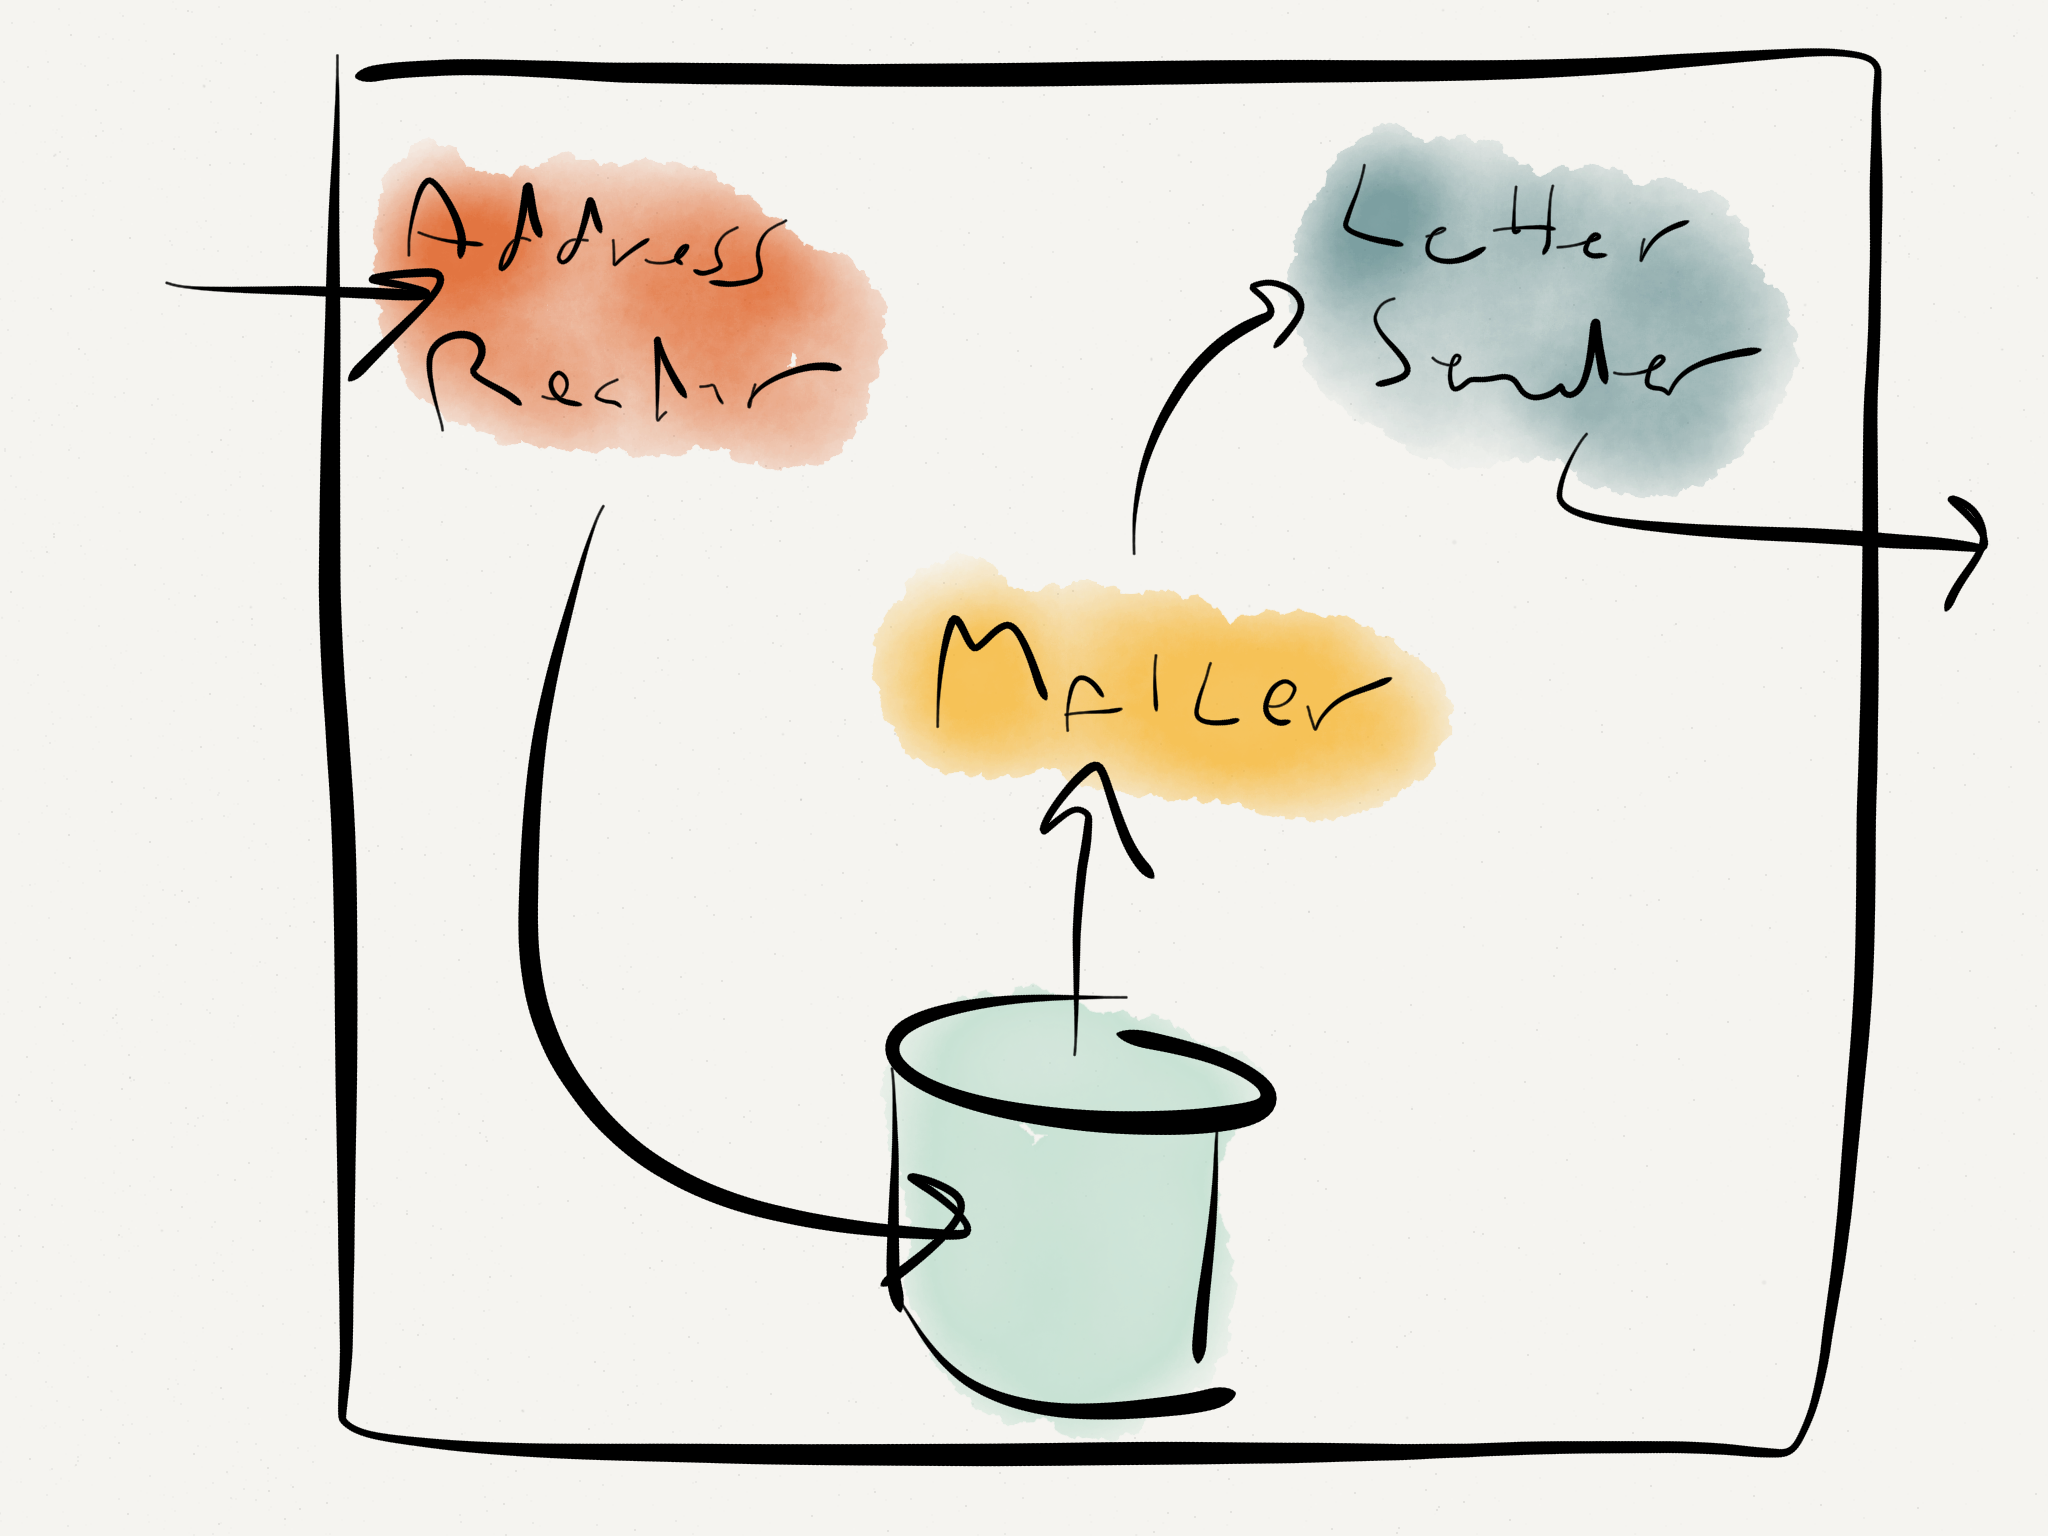 Address
Reader
Letter
Sender
Mailer